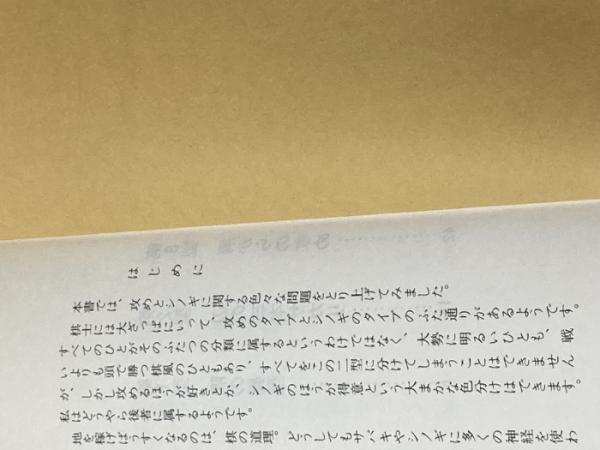 はじめに
本書では、攻めとシノギに関する色々な問題をとり上げてみました。
棋士には大ざっぱにいって、攻めのタイプとシノギのタイプのふた通りがあるようです。
すべてのひとがそのふたつの分類に属するというわけではなく、大勢に明るいひとも、戦
いよりも頭で勝つ棋風のひともあり、すべてをこの二型に分けてしまうことはできません
が、しかし攻めるほうが好きとか、シノギのほうが得意という大まかな色分けはできます。
私はどうやら後者に属するようです。
地を稼げばうすくなるのは、棋の道理。どうしてもサバキやシノギに多くの神経を使わ